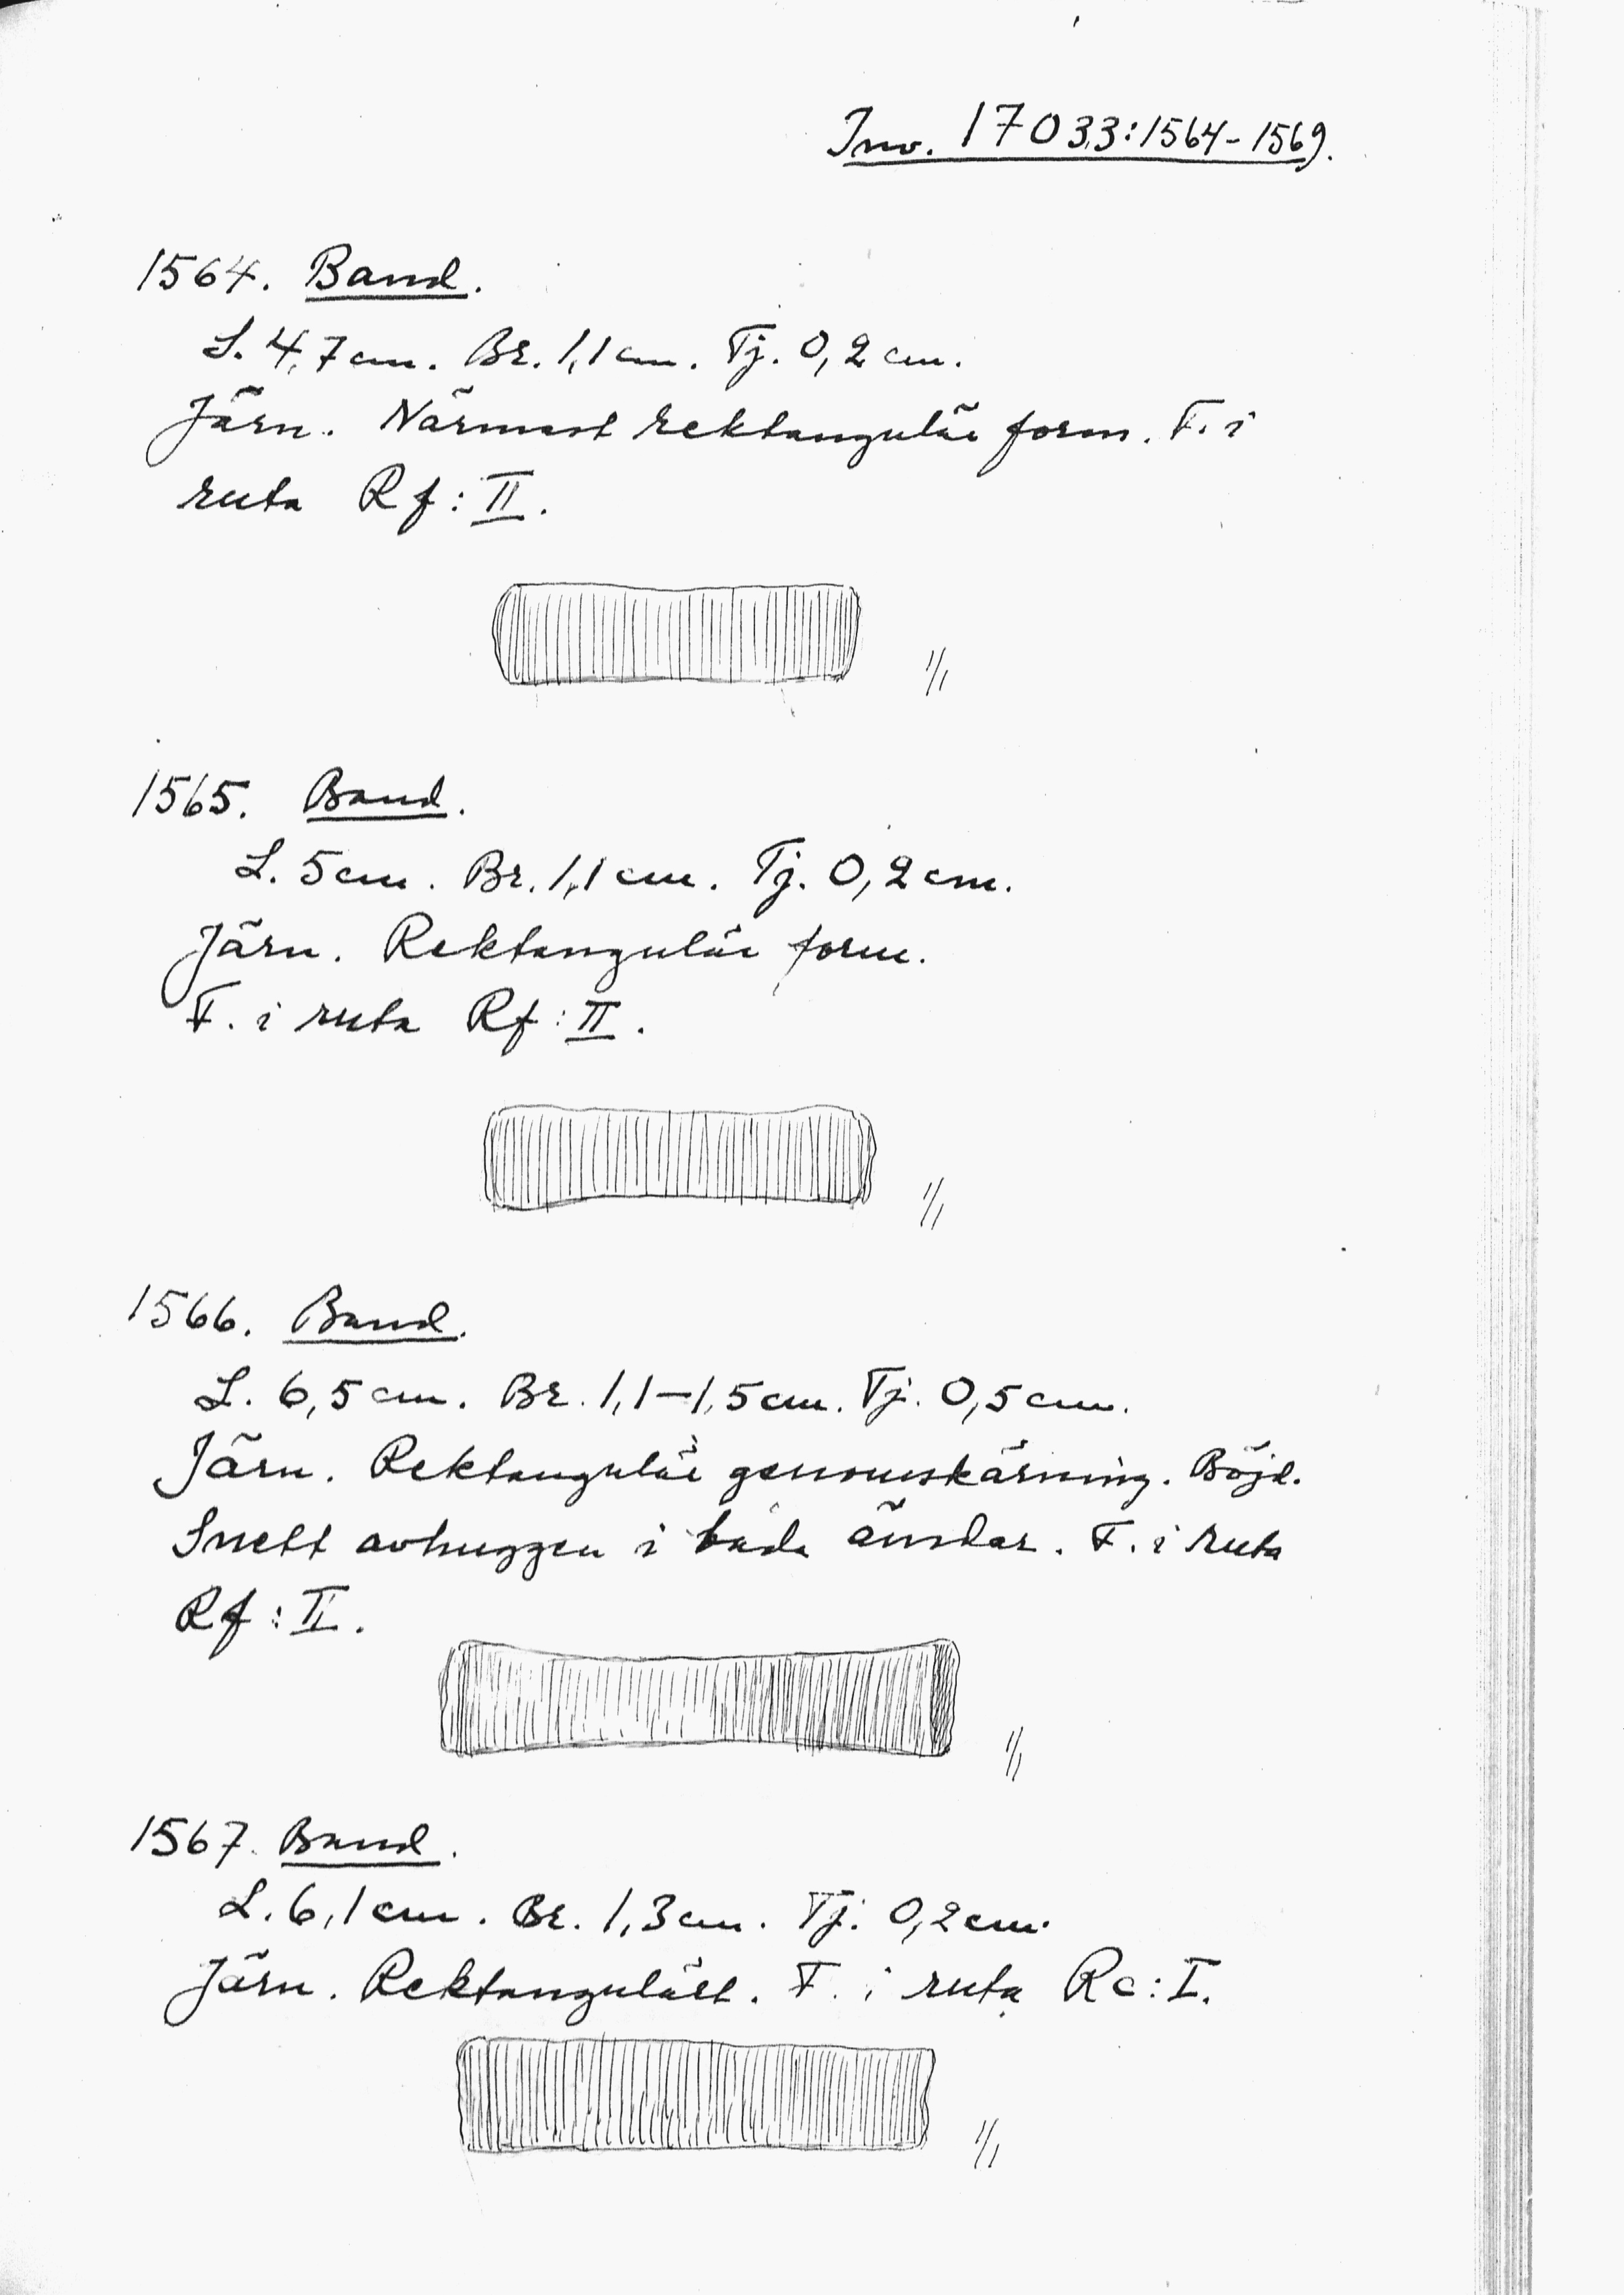 Inv. 17033:1564-1569.
1564. Band.
L. 4,7 cm. Br. 1,1 cm. Tj. 0,2 cm.
Järn. Närmast rektangulär form. F. i
ruta Rf: II.
1/1
1565. Band.
L. 5 cm. Br. 1,1 cm. Tj. 0,2 cm.
Järn. Rektangulär form.
F. i ruta Rf: II.
1/1
1566. Band.
L. 6,5 cm. Br. 1,1-1,5 cm. Tj. 0,5 cm.
Järn. Rektangulär genomskärning. Böjd.
Snett avhuggen i båda ändar. F. i ruta
Rf: II.
1/1
1567. Band.
L. 6,1 cm. Br. 1,3 cm. Tj. 0,2 cm.
Järn. Rektangulärt. F. i ruta Rc: I.
1/1